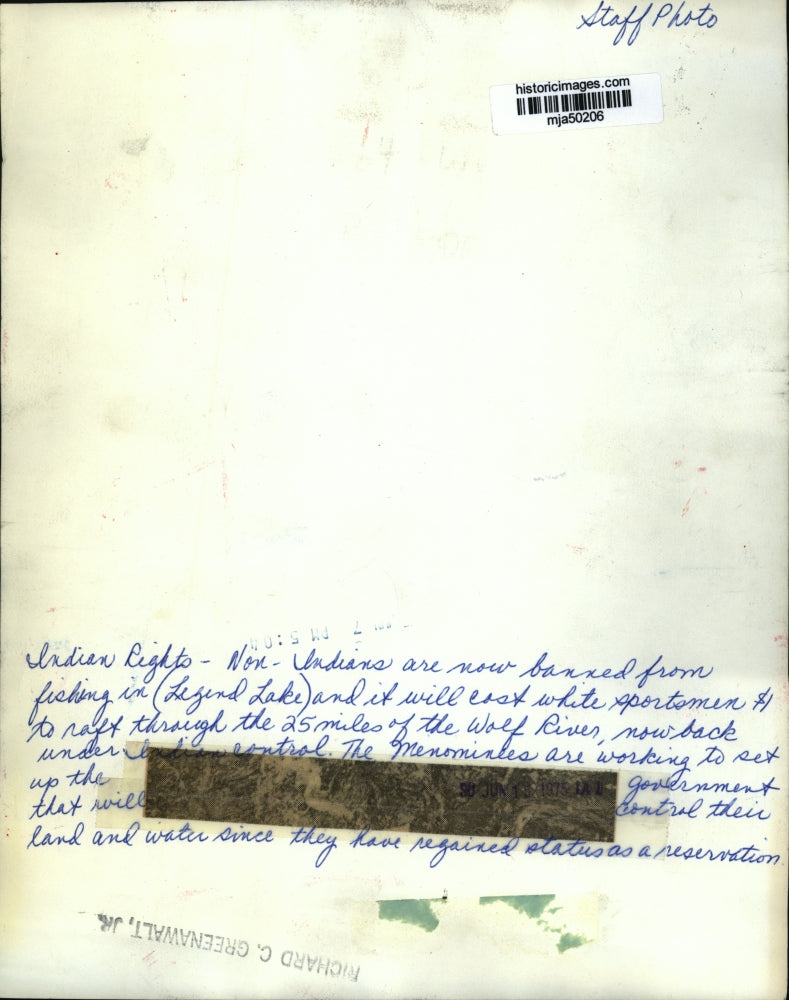 Staff Photo
historicimages.com
mja50206
7 PM 5:0
Indian Rights - Non-Indians are now banned from
fishing in (Legend Lake) and it will cost white sportsmen $1
to raft through the 25 miles of the Wolf River, now back
under Indian control. The Menominees are working to set
up the government
SU JUN 1 1975
that will control their
land and water since they have regained status as a reservation
RICHARD C. GREENAWALT, JR.